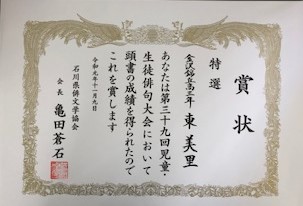 賞状
特選
金沢錦丘高三年 東美里
あなたは第三十九回児童・
生徒俳句大会において
頭書の成績を得られたので
これを賞します
令和元年十一月九日
石川県俳文学協会
会長 亀田蒼石